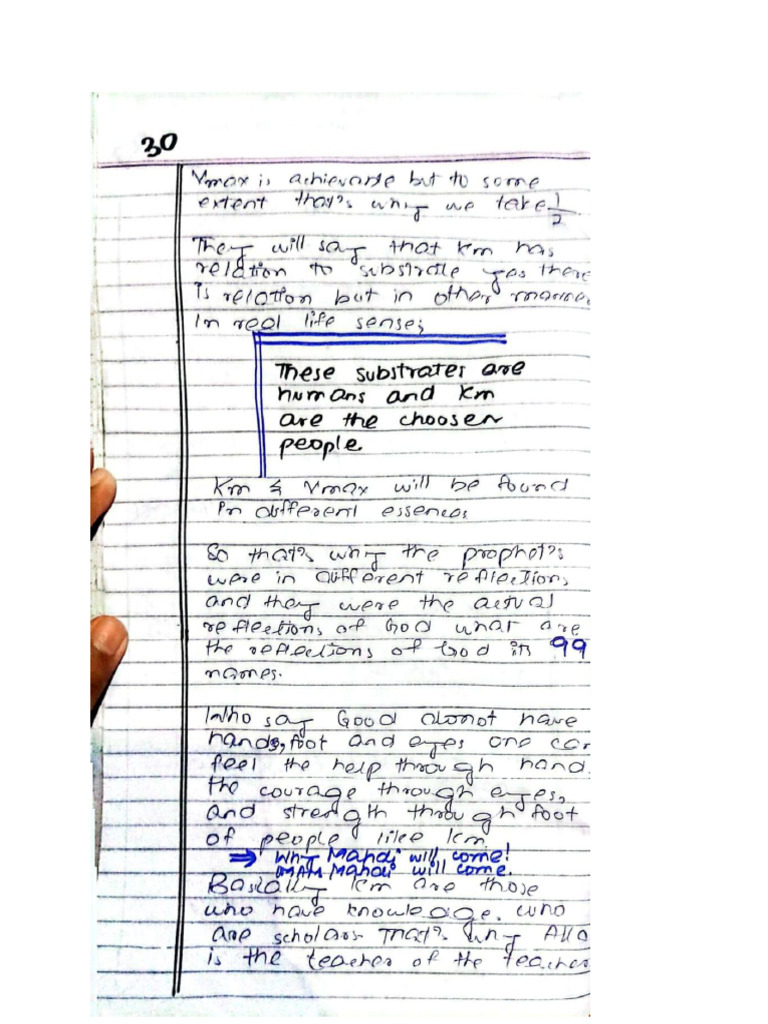 30
Vmax is achievable but to some
extent that's why we take 1/2
They will say that Km has
relation to substrate yes there
is relation but in other manner
In real life sense;
These substrates are
humans and Km
are the choosen
people.
Km & Vmax will be found
in different essences
So that's why the prophet's
were in different reflections,
and they were the actual
reflections of God what are
the reflections of God its 99
names.
Who say Good donot have
hands, foot and eyes one can
feel the help through hand.
the courage through eyes,
and strength through foot
of people like Km
⇒ Why Mahdi will come!
IMAM Mahdi will come.
Basically Km are those
who have knowledge. who
are scholars That's why Alla
is the teacher of the teacher